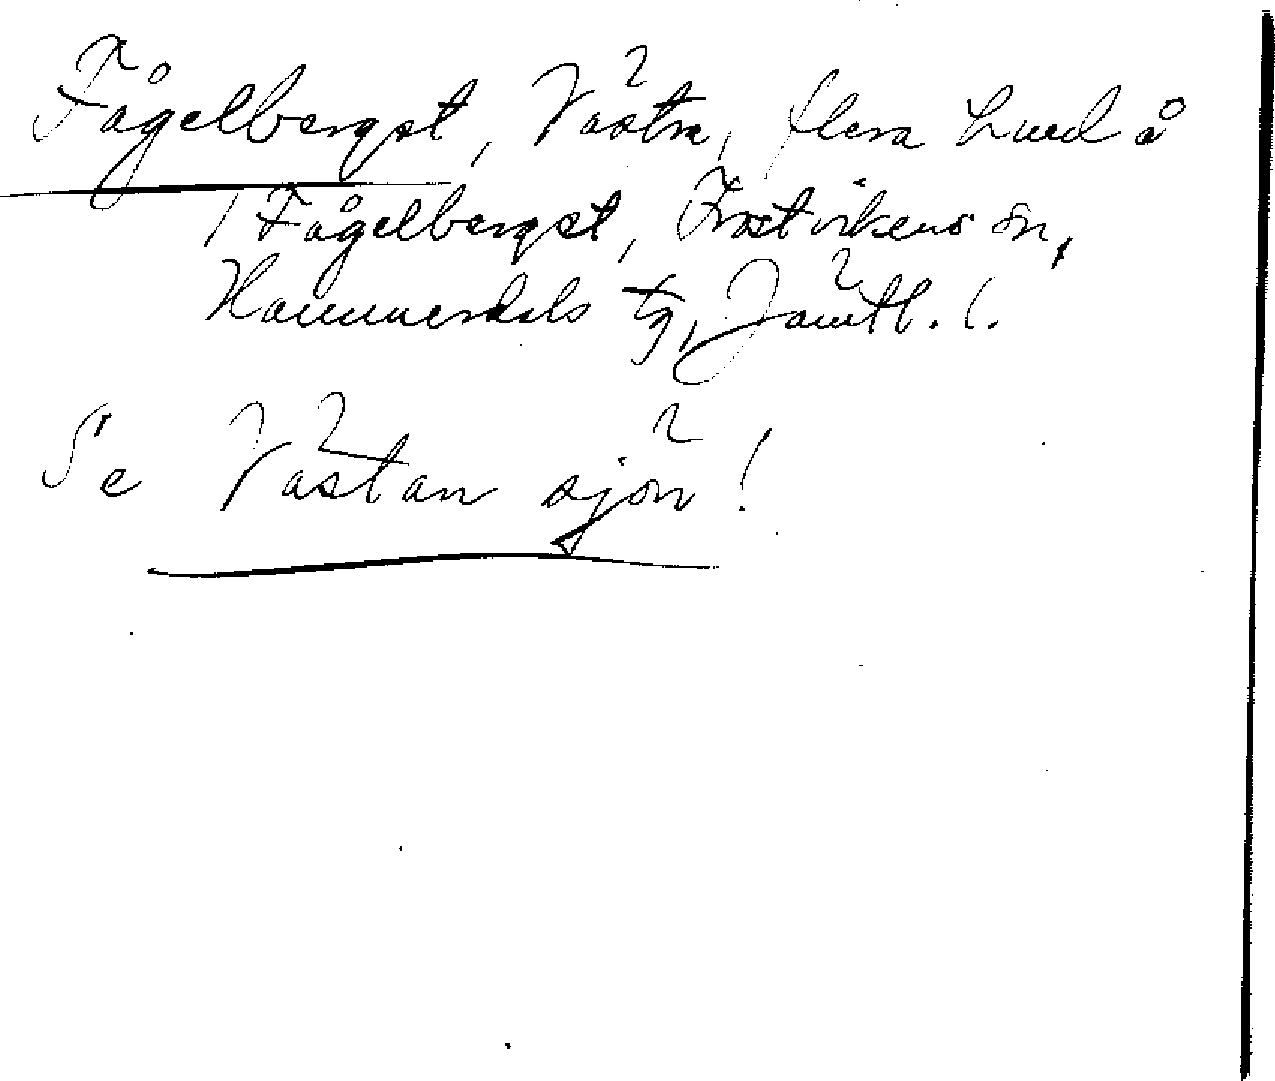 Fågelbergst, Västra, flera hus å
/ Fågelbergst, Frostvikens sn,
Hammerdals tg, Jämtl. l.
Se Västansjön!